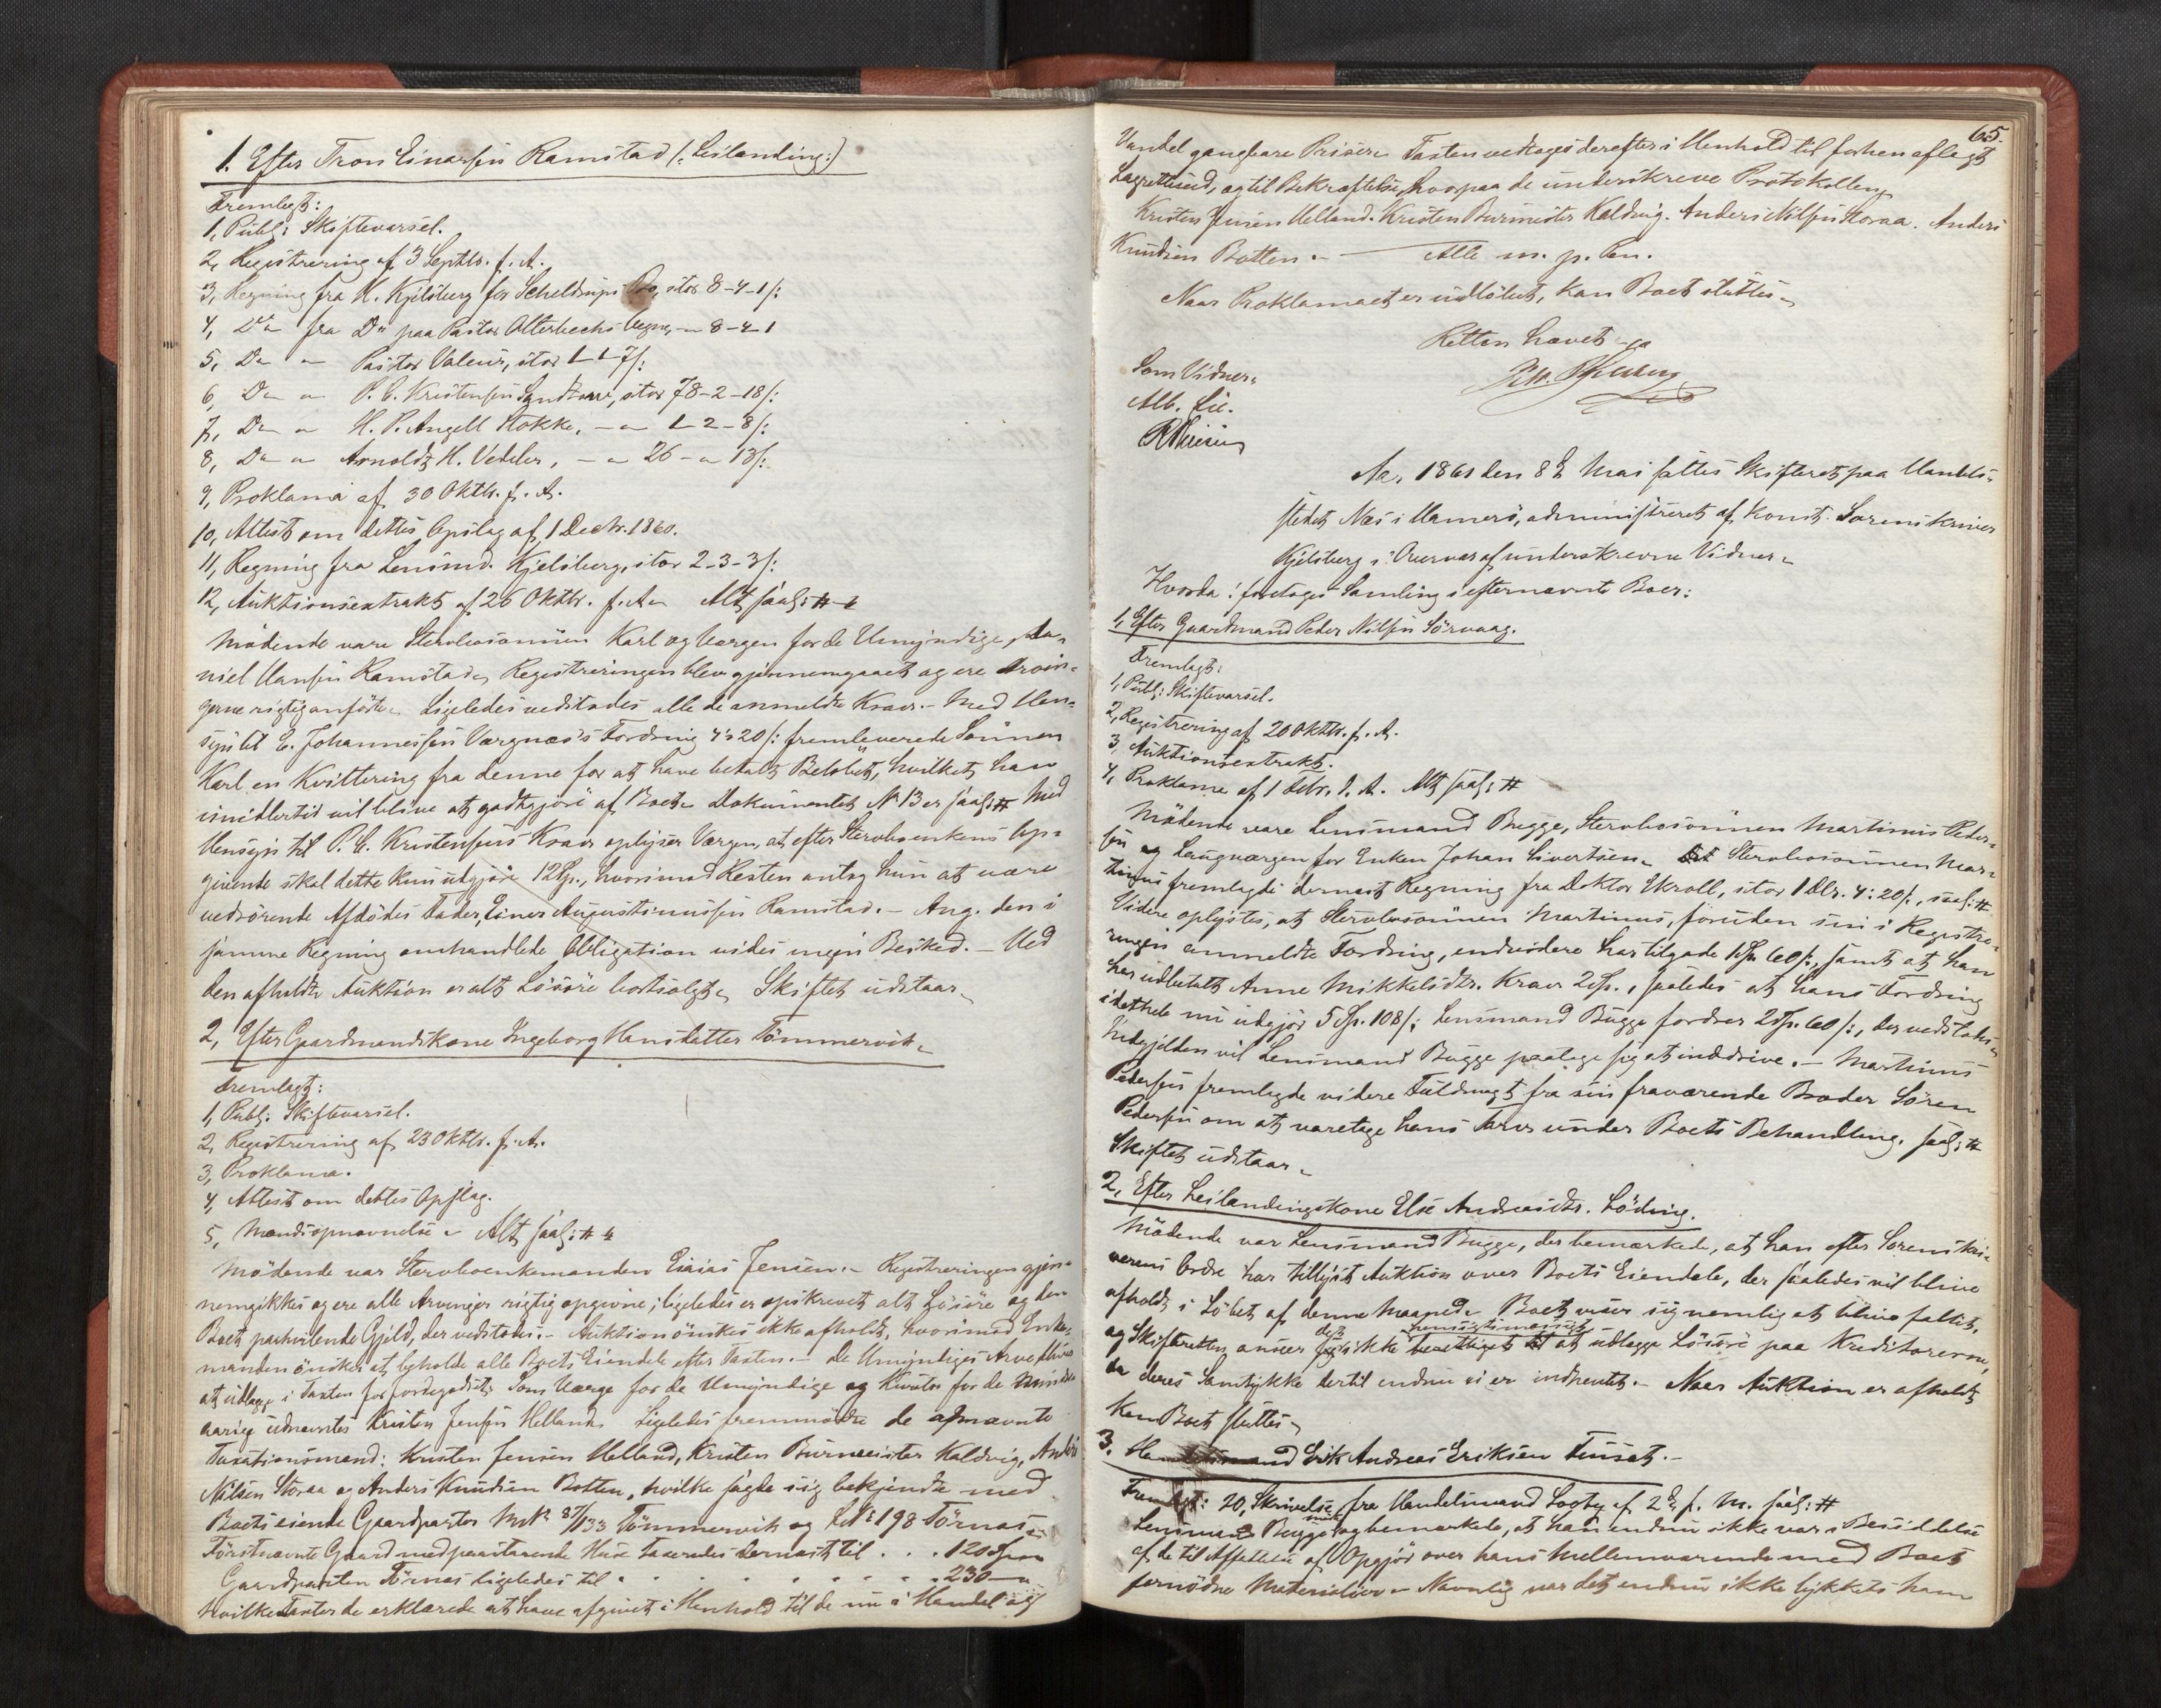 1. Efter Tron Einarsen Ramstad (:Leilænding:)
Fremlagt:
1, Publ: Skiftevarsel.
2, Registrering af 3 Septbr. f. A.
3, Regning fra H. Kjelsberg for Scheldrups Bo, stor 8-4-1 /:
4, Do fra Do paa Pastor Atterbechs Vegne, " 8-4-1
5, Do " Pastor Valeur, stor 1-1-7/:
6, Do " P. C. Kristensen Sandtorv, stor 78-2-18/:
7, Do " H. P. Angell Stokke, - " 1-2-8/:
8, Do " Arnoldt H. Vebeler, - " 26 - " 13/:
9, Proklama af 30 Oktbr. f. A.
10, Attest om dettes Opslag af 1 Decbr. 1860.
11, Regning fra Lensmd. Kjelsberg, stor 2-3-3/:
12, Auktionsextrakt af 26 Oktbr. f. A. Alt saal: #
Mødende vare Stervbosønnen Karl og Værgen for de Umyndige, Da-
niel Hansen Ramstad. Registreringen blev gjennemgaaet og ere Arvin-
gerne rigtig anførte. Ligeledes vedstodes alle de anmeldte Krav. - Med Hen-
syn til E. Johannessen Værgnæs's Fordring 4 " 20/: fremleverede Sønnen
Karl en Kvittering fra denne for at have betalt Beløbet, hvilket han
imidlertid vil blive at godtgjøre af Boet. Dokumentet No 13 er saal: # Med
Hensyn til P. C. Kristensens Krav oplyser Værgen, at efter Stervboenkens Op-
givende skal dette kun udgjøre 12 Sp., hvorimod Resten antog hun at være
vedrørende Afdødes Fader, Einer Augustinussen Ramstad. - Ang. den i
samme Regning omhandlede Obligation vides ingen Besked. - Ved
den afholdte Auktion er alt Løsøre bortsolgt. Skiftet udstaar.
2, Efter Gaardmandskone Ingeborg Hansdatter Tømmervik.
Fremlagt:
1, Publ: Skiftevarsel.
2, Registrering af 23 Oktbr. f. A.
3, Proklama.
4, Attest om dettes Opslag.
5, Mændsopnævnelse. Alt saal: #
Mødende var Stervboenkemanden Esaias Jensen. - Registreringen gjen-
nemgikkes og ere alle Arvinger rigtig opgivne; ligeledes er opskrevet alt Løsøre og den
Boet paahvilende Gjeld, der vedstodes. - Auktion ønskes ikke afholdt, hvorimod Enke-
manden ønsker at beholde alle Boets Eiendele efter Taxten. - De Umyndiges Arv
at udlægge i Taxten for Jordegodset. Som Værge for de Umyndige og Kurator for de Mindre-
aarige udnævntes Kristen Jensen Helland. Ligeledes fremmødte de opnævnte
Taxationsmænd: Kristen Jensen Helland, Kristen Burmeister Kaldvig, Anders
Nilsen Storaa og Anders Knudsen Botten, hvilke sagde sig bekjendte med
Boets eiende Gaardparter MNo 87/133 Tømmervik og LNo 198 Tørnæs.
Førstnævnte Gaard med paastaaende Huse taxeredes dernæst til . . . 120 Sp.
Gaardparten Tørnæs ligeledes til . . . . . . . 230 - "
hvilke Taxter de erklærede at have afgivet i Henhold til de nu i Handel og

65.
Vandel gangbare Priser. Taxten vedtoges derefter i Henhold til forhen aflagt
Lagretteseed, og til Bekræftelse, hvorpaa de underskreve Protokollen.
Kristen Jensen Helland. Kristen Burmeister Kaldvig. Anders Nilsen Storaa. Anders
Knudsen Botten. - Alle m. p. Pen.
Naar Proklamaet er udløbet, kan Boet sluttes.
Retten hævet.
Som Vidner.
Alb. Lie.
Aar 1861 den 8de Mai sattes Skifteret paa Handels-
stedet Næs i Hamerø, administreret af konst. Sorenskriver
Kjelsberg i Overvær af underskrevne Vidner.
Hvorda: foretoges Samling i efternævnte Boer:
1, Efter Gaardmand Peder Nilsen Sørvaag.
Fremlagt:
1, Publ: Skiftevarsel.
2, Registrering af 20 Oktbr. f. A.
3, Auktionsextrakt.
4, Proklama af 1 Febr. d. A. Alt saal: #
Mødende vare Lensmand Bugge, Stervbosønnen Martinus Peder-
sen og Laugværgen for Enken Johan Sivertsen. Stervbosønnen Mar-
tinus fremlagde dernæst Regning fra Doktor Ekroll, stor 1 Dlr. 4: 20/:, saal: #
Videre oplystes, at Stervbosønnen Martinus, foruden sin i Registre-
ringen anmeldte Fordring, endvidere har tilgode 1 Sp. 60/:, samt at han
har udbetalt Anne Mikkelsdtr. Krav 2 Sp., saaledes at hans Fordring
i det hele nu udgjør 5 Sp. 108/; Lensmand Bugge fordrer 2 Sp. 60/:, der vedstodes.
Udegjelden vil Lensmand Bugge paatage sig at inddrive. - Martinus
Pedersen fremlagde videre Fuldmagt fra sin fraværende Broder Søren
Pedersen om at varetage hans Tarv under Boets Behandling. saal: #
Skiftet udstaar.
2, Efter Leilændingskone Else Andreasdtr. Løding.
Mødende var Lensmand Bugge, der bemærkede, at han efter Sorenskri-
verens Ordre har tillyst Auktion over Boets Eiendele, der saaledes vil blive
afholdt i Løbet af denne Maaned. Boet viser sig nemlig at blive fallit,
og Skifteretten anser det ikke hensigtsmæssigt at udlægge Løsøre paa Kreditorerne,
da deres Samtykke dertil endnu ei er indhentet. - Naar Auktion er afholdt
kan Boet sluttes.
3. Handelsmand Erik Andreas Eriksen Tusset. -
Fremlagt: 20, Skrivelse fra Handelsmand Lochy af 2de f. M. saal: #
Lensmand Bugge mødte og bemærkede, at han endnu ikke var i Besiddelse
af de til Affattelse af Opgjør over hans Mellemværende med Boet
fornødne Materialier. Navnlig var det endnu ikke lykkets ham